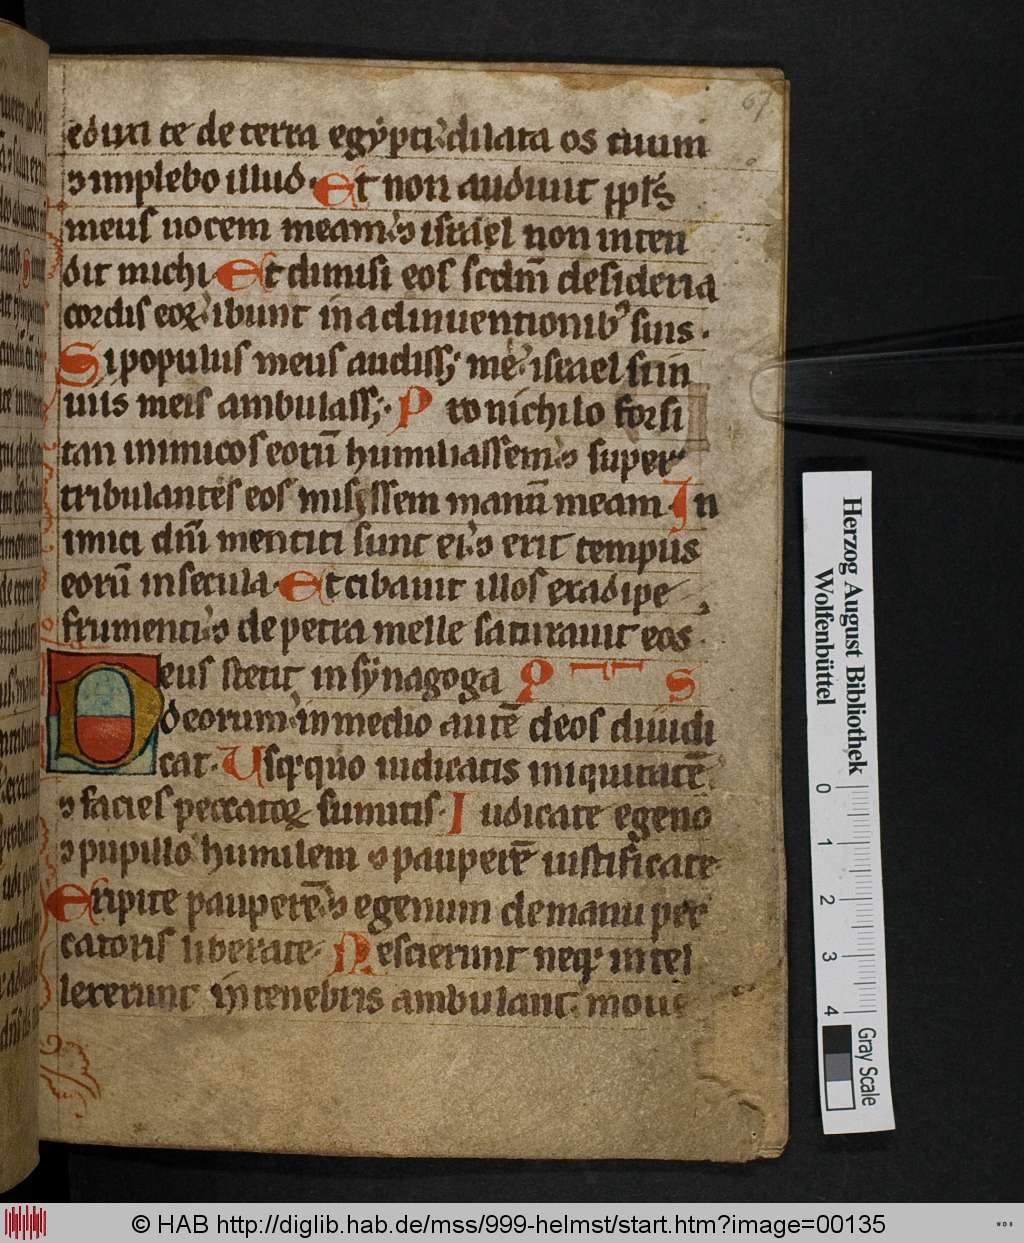 67
eduxi te de terra egypti dilata os tuum
⁊ implebo illud. Et non audiuit ppl's
meus uocem meam ⁊ israel non inten
dit michi. Et dimisi eos scdm̄ desideria
cordis eoꝝ ibunt in adinuentionibꝰ suis.
Si populus meus audiss; me israel si in
uiis meis ambulass;. Pro nichilo forsi
tan inimicos eorū humiliassem ⁊ super
tribulantes eos misissem manū meam. In
imici dn̄i mentiti sunt ei ⁊ erit tempus
eorū in secula. Et cibauit illos ex adipe
frumenti ⁊ de petra melle saturauit eos.
Deus stetit in synagoga
deorum in medio autē deos diiudi
cat. Usq;quo iudicatis iniquitatē
⁊ facies peccatoꝝ sumitis. Iudicate egeno
⁊ pupillo humilem ⁊ pauperē iustificate
Eripite pauperē ⁊ egenum de manu pec
catoris liberate. Nescierunt neq; intel
lexerunt in tenebris ambulant moue
Herzog August Bibliothek
Wolfenbüttel
0 1 2 3 4
Gray Scale
© HAB http://diglib.hab.de/mss/999-helmst/start.htm?image=00135